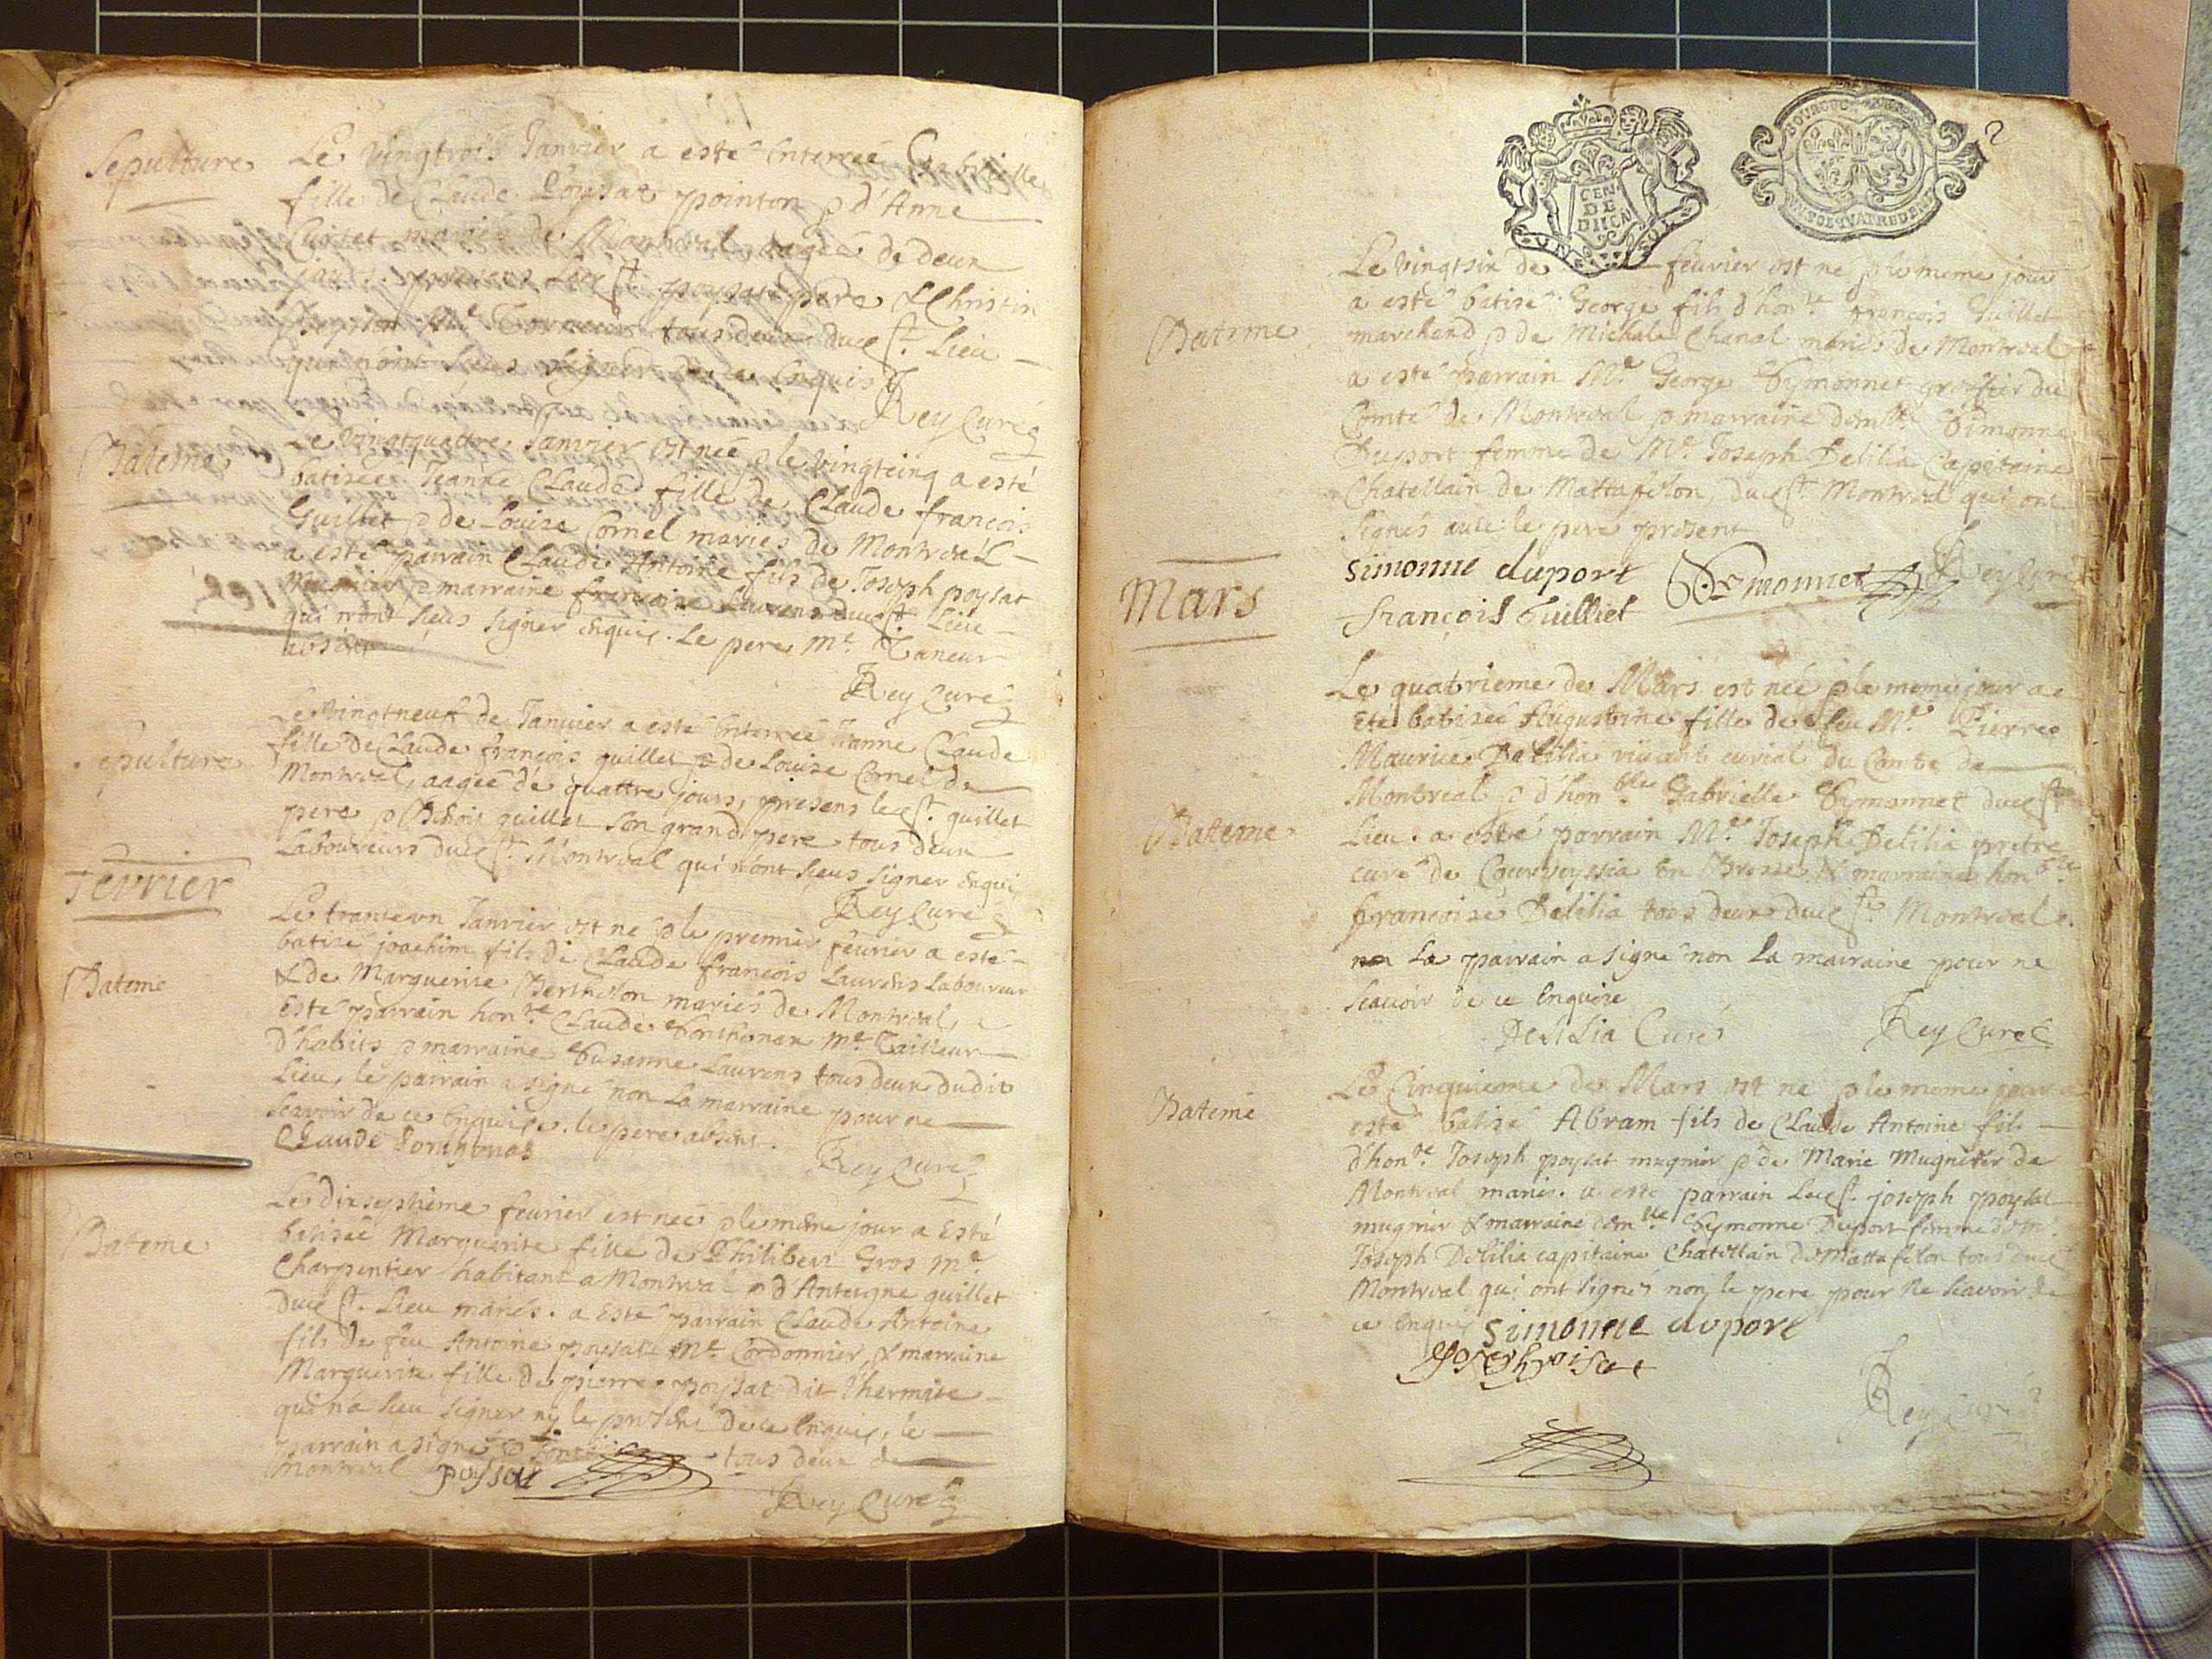 Sepulture
Le vingtrois Janvier a esté enterrée Gabrielle
fille de Claude Poysat pointon & d'Anne
mariés de Montreal aagée de deux
jours. presens lee st. poysat pere & Christin
tous deux duct st. Lieu
qui n'ont sceus signer de ce enquis
Rey Curé
Bateme
Le vingtquattre Janvier est née & le vingtcinq a esté
batisée Jeanne Claude fille de Claude françois
Guillet & de Louise Cornel mariés de Montreal
a esté parrain Claude Antoine fils de Joseph poysat
& marraine françoise Laurens duct st. Lieu
qui n'ont sceus signer enquis. Le pere Me. Taneur
absent
Rey Curé
epulture
Le vingtneuf de Janvier a esté enterrée Jeanne Claude
fille de Claude françois guillet & de Louise Cornel de
Montreal, aagée de quattre jours, presens lee st. guillet
pere & Benoit guillet son grand pere tous deux
Laboureurs duct st. Montreal qui n'ont sceus signer enquis
Rey Curé
Fevrier
Bateme
Le trenteun Janvier est né & le premier fevrier a esté
batisé joachim fils de Claude françois Laurens Laboureur
& de Marguerite Berthelon mariés de Montreal, a
esté parrain honte. Claude Me. Tailleur
d'habits & marraine Susanne Laurens tous deux dudit
Lieu, le parrain a signé non La marraine pour ne
scavoir de ce enquise. le pere absent.
Rey Curé
Bateme
Le dixseptieme fevrier est née & le meme jour a esté
batisée Marguerite fille de Philibert Gros me.
Charpentier habitant a Montreal & d'Antoigne guillet
duct st. Lieu mariés. a esté parrain Claude Antoine
fils de feu Antoine poysat Me. Cordonnier, & marraine
Marguerite fille de pierre poysat dit l'hermite
qui n'a sceu signer ny le present de ce enquis, le
parrain a signé tous deux de
Montreal poysat
Rey Curé
2
Le vingtsix de fevrier est né & le meme jour
Bateme
a esté batisé George fils d'honte. françois Guillet
marchand & de Michele Chanal mariés de Montreal
a esté parrain Me. George Symonnet greffier du
Comté de Montreal & marraine demlle. Simonne
Duport femme de Me. Joseph Delilia Capitaine
Chatellain de Mattafelon, duct st. Montreal qui ont
signés avec le pere present
simonne duport Symonnet Rey Curé
françois Guilliet
Mars
Le quatrieme de Mars est née & le meme jour a
eté batisée Augustine fille de feu Me. Pierre
Maurice Delilia vivant curial du Comté de
Montreal & d'honble Gabrielle Symonnet duct st.
Bateme
Lieu. a esté parrain Me. Joseph Delilia pretre
curé de Courveyssia en Bresse & marraine honble
françoise Delilia tous deux duct st. Montreal.
Le parrain a signé non La marraine pour ne
scavoir de ce enquise
Delilia Curé Rey Curé
Bateme
Le Cinquieme de Mars est né & le meme jour a
esté batisé Abram fils de Claude Antoine fils
d'honte. Joseph poysat mugnier & de Marie Mugnier de
Montreal mariés. a esté parrain lect st. joseph poysat
mugnier & marraine demlle Symonne Duport femme de me.
Joseph Delilia capitaine Chatellain de Mattafelon tous duct
Montreal qui ont signés non le pere pour ne scavoir de
ce enquis simonne duport
Rey Curé